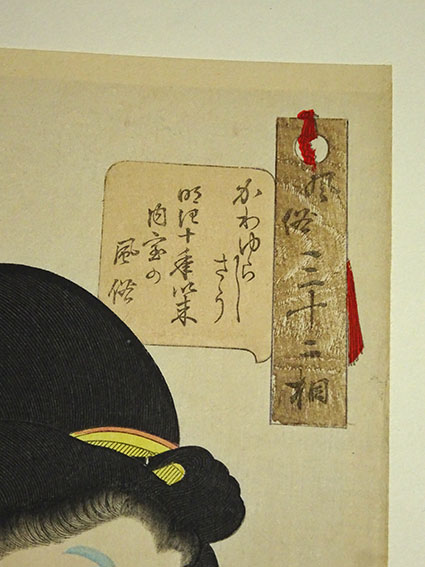 風俗三十二相
かわゆらし
さう
明治十年以来
内室の
風俗